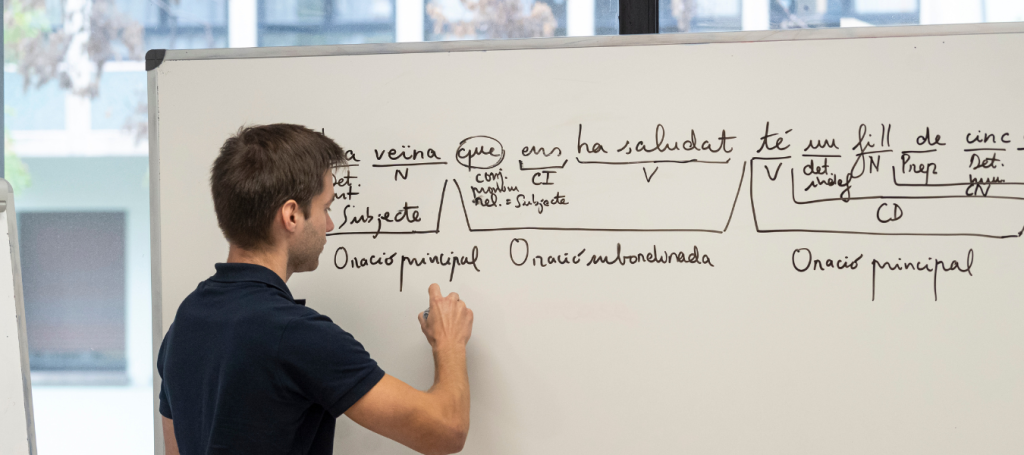 a veïna que ens ha saludat té un fill de cinc
Det. N conj. CI V V det. N Prep Det.
pronom indef num
rel. = Subjecte CN
Subjecte CD
Oració principal Oració subordinada Oració principal